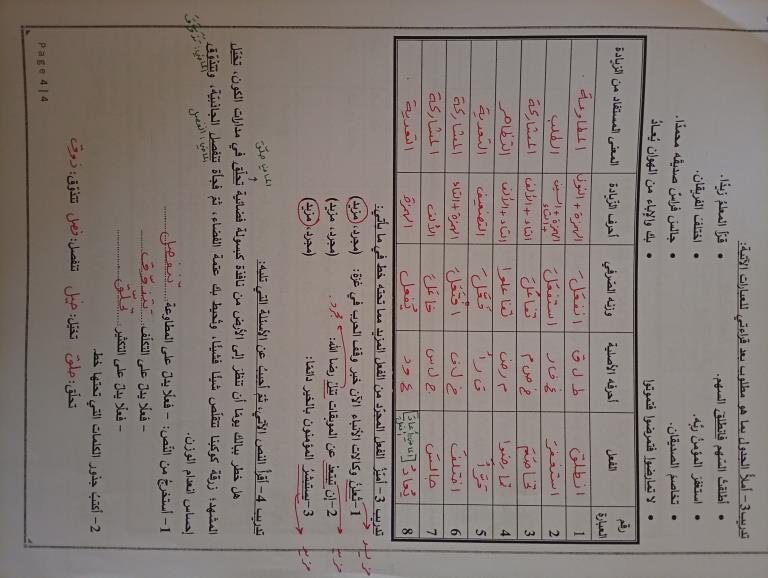 تدريب3- أملأ الجدول بما هو مطلوب بعد قراءتي للعبارات الآتية:
• أطلقتُ السّهم فانطلق السهم. • قرّأ المعلمُ زيدًا.
• استغفرَ المؤمنُ ربّه. • اختلفَ الفريقان.
• تخاصمَ الصديقان. • جالسَ فراسُ صديقَه محمدًا.
• لا تمارضوا فتمرضوا فتموتوا • بك والإباء من الهوان يُعادُ
رقم العبارة الفعل أحرفه الأصلية وزنه الصّرفي أحرف الزّيادة المعنى المستفاد من الزيادة
1 انطلق ط ل ق انفعلَ الهمزة + النون المطاوعة
2 استغفرَ غ ف ر استفعلَ الهمزة + السين + التاء الطلب
3 تخاصمَ خ ص م تفاعَلَ التاء + الألف المشاركة
4 تمارضوا م ر ض تفاعلوا التاء + الألف التظاهر
5 قرّأ ق ر أ فعّلَ التضعيف التعدية
6 اختلفَ خ ل ف افتعَلَ الهمزة + التاء المشاركة
7 جالسَ ج ل س فاعَلَ الألف المشاركة
8 يُعادُ ع و ذ يُفعل الهمزة التعدية
تدريب 3- أميّزُ الفعل المجرّد من الفعل المزيد مما تحته خط في ما يأتي:
1-تُعلنُ وكالات الأنباء الآن خبر وقف الحرب في غزة: (مجرد، مزيد) مزيد
2-إن تبتعدْ عن الموبقات تنلْ رضا الله: (مجرد، مزيد) مجرد مزيد
3-يستبشرُ المؤمنون بالخير دائمًا: (مجرد، مزيد) مزيد
تدريب 4- أقرأُ النص الآتي، ثم أُجيبُ عن الأسئلة التي تليه:
هل خطر ببالك يومًا أن تنظرَ إلى الأرض من نافذة كبسولة فضائية تحلّق في مدارات الكون، تخيّل
المشهد: زرقة كوكبنا تتقلّص شيئًا فشيئًا، وتُحيط بك عتمة الفضاء، ثم فجأة تنفصل الجاذبيّة، وتتذوّق
إحساس انعدام الوزن.
1- أستخرجُ من النّص: - فعلًا يدلّ على المطاوعة تنفصل
- فعلًا يدلّ على التكلّف تتذوّق
- فعلًا يدلّ على التكثير تحلّق
2- أكتبُ جذور الكلمات التي تحتها خط.
تحلّق: حلق تخيّل: خيل تنفصل: فصل تتذوّق: ذوق
Page 4|4